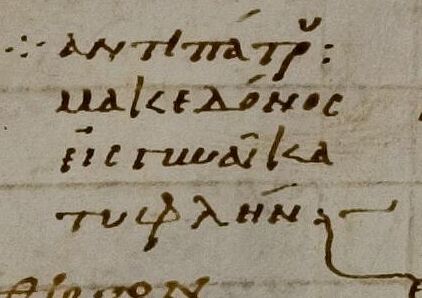 ⁘ ἀντιπάτρȣ:
μακεδόνος
εἰς γυναῖκα
τυφλήν: